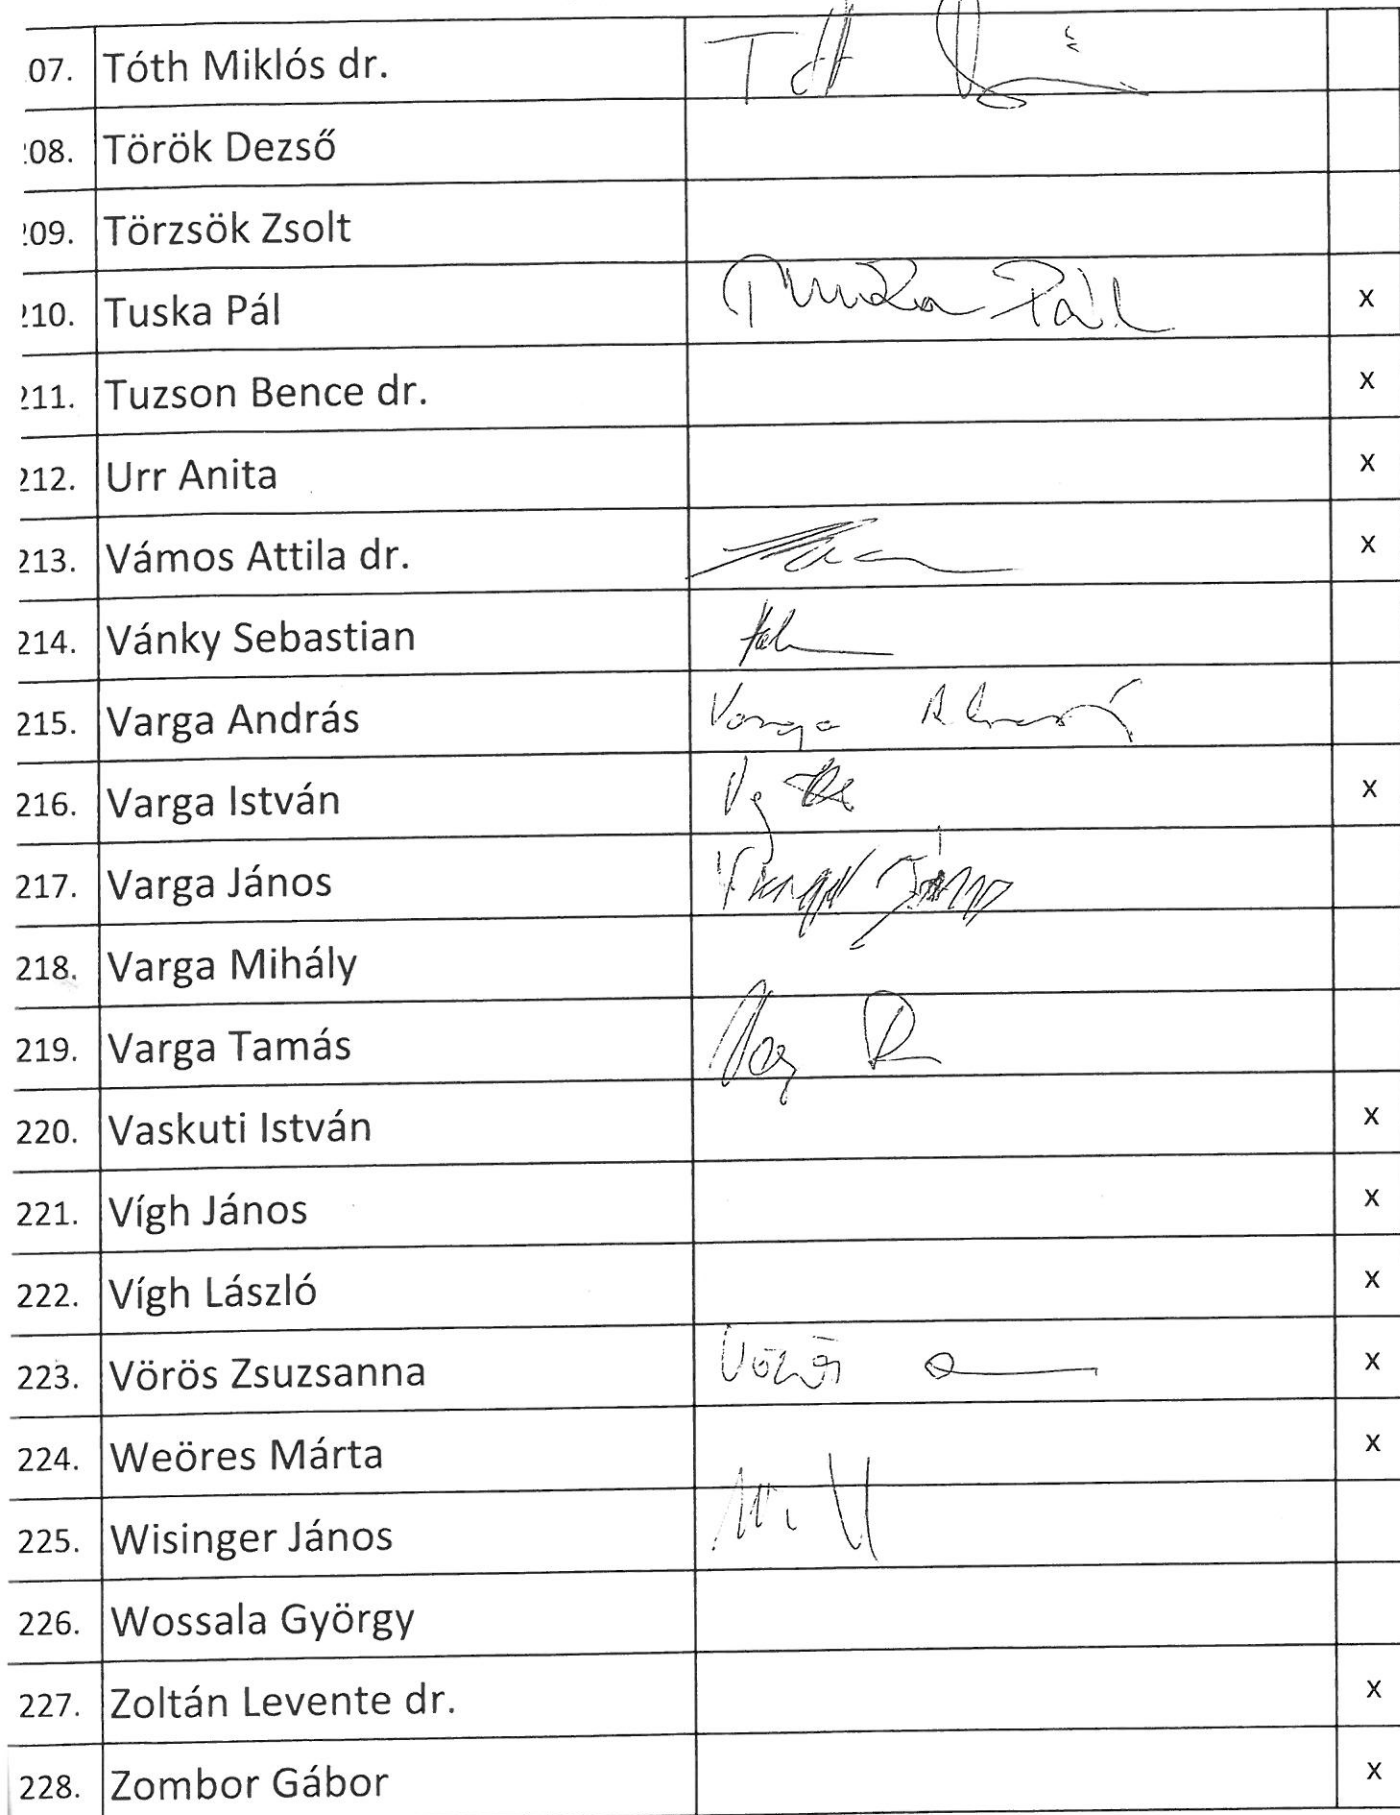 07. Tóth Miklós dr. Tóth
08. Török Dezső
209. Törzsök Zsolt
210. Tuska Pál Tuska Pál x
211. Tuzson Bence dr. x
212. Urr Anita x
213. Vámos Attila dr. x
214. Vánky Sebastian
215. Varga András Varga András
216. Varga István x
217. Varga János Varga János
218. Varga Mihály
219. Varga Tamás
220. Vaskuti István x
221. Vígh János x
222. Vígh László x
223. Vörös Zsuzsanna Vörös x
224. Weöres Márta x
225. Wisinger János
226. Wossala György
227. Zoltán Levente dr. x
228. Zombor Gábor x